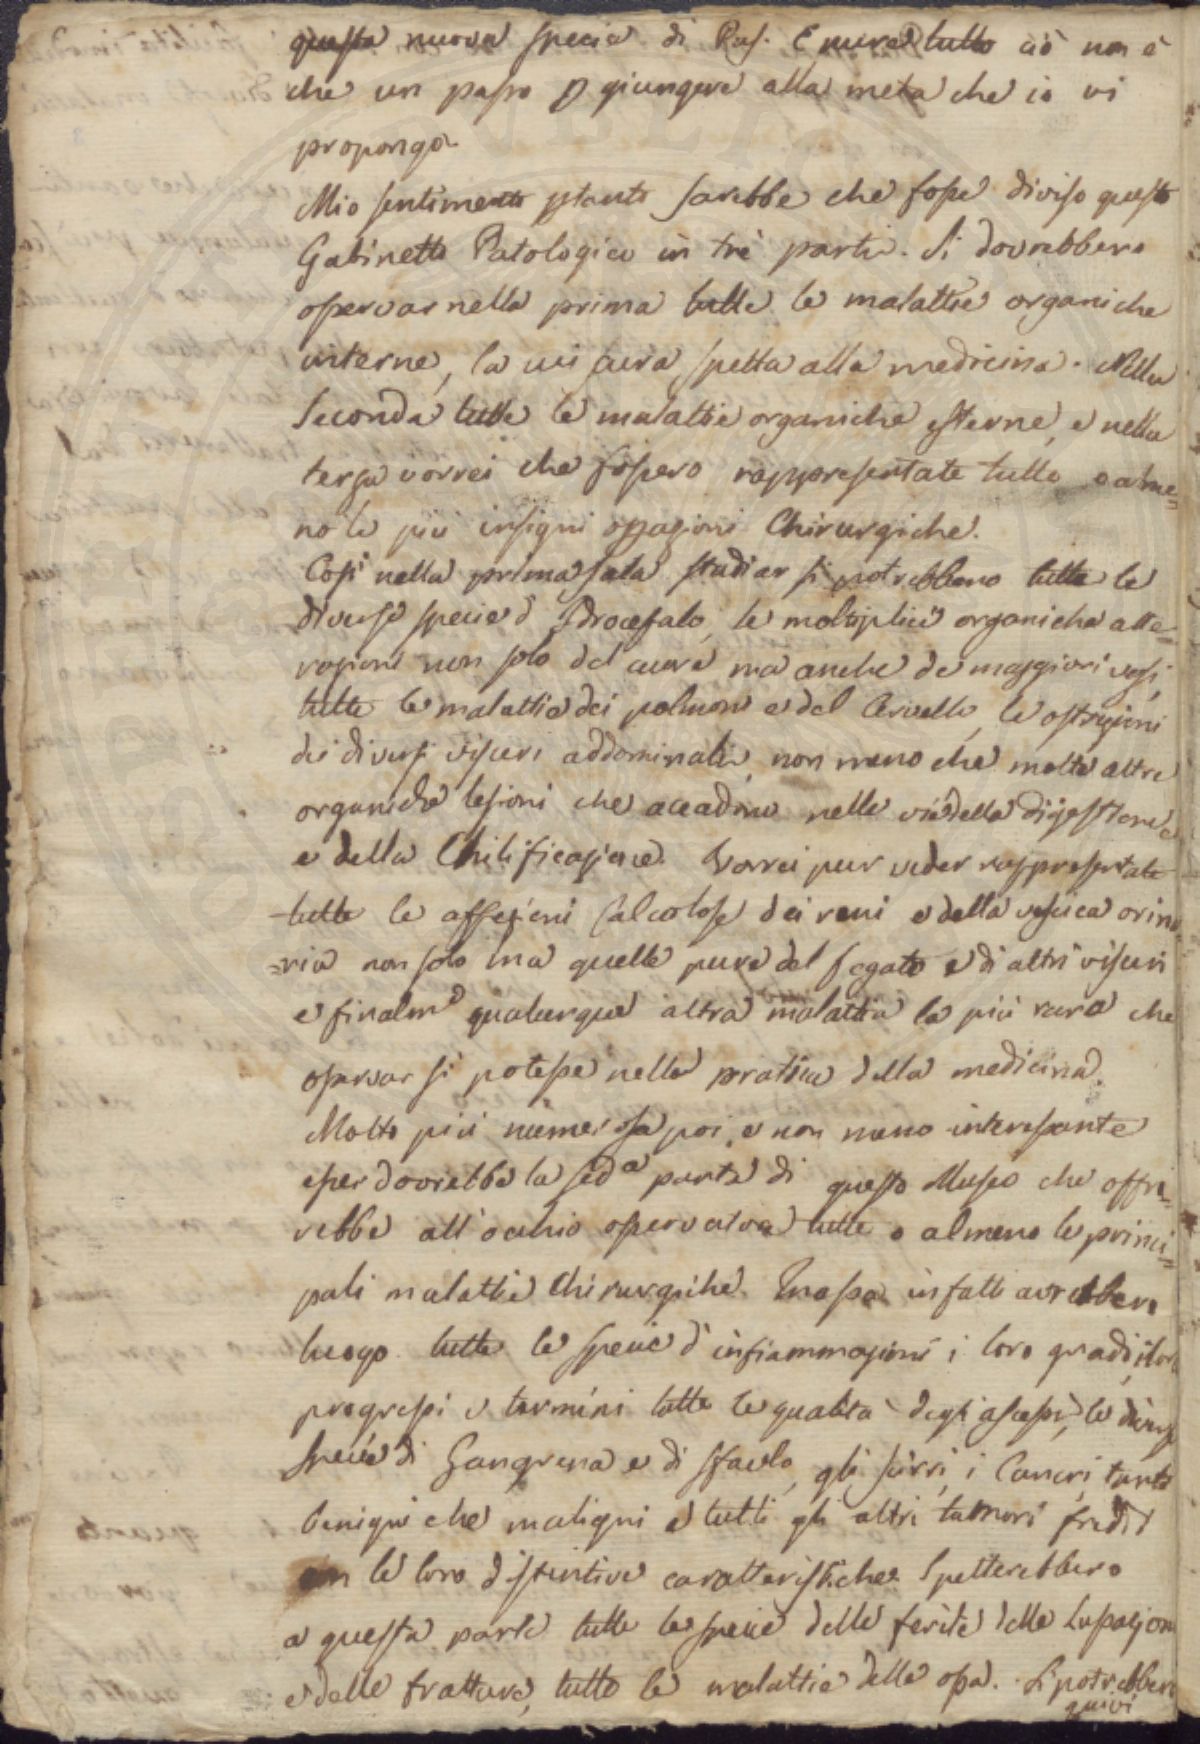 questa nuova specie di Eppure tutto ciò non è
che un passo p giungere alla meta che io vi
propongo
Mio sentimento ptanto sarebbe che fosse diviso questo
Gabinetto Patologico in trè parti. Si dovrebbero
osservar nella prima tutte le malattie organiche
interne, la cui cura spetta alla medicina. Nella
Seconda tutte le malattie organiche esterne, e nella
terza vorrei che fossero rappresentate tutte o alme=
no le più insigni opazioni Chirurgiche.
Così nella prima sala studiar si potrebbero tutte le
diverse specie d'Idrocefalo, le moltiplici organiche alte=
razioni non solo del cuore ma anche de maggiori vasi,
tutte le malattie dei polmoni e del Cervello, le ostruzioni
dei diversi visceri addominali, non meno che molte altre
organiche lesioni che accadono nelle vie della digestione
e della Chilificazione. Vorrei pur veder rappresentate
tutte le affezioni Calcolose dei reni e della vescica orina
=ria non solo ma quelle pure del fegato e di altri visceri
e finalme qualunque altra malattia la più rara che
osservar si potesse nella pratica della medicina.
Molto più numerosa poi, e non meno interessante
esser dovrebbe la seda parte di questo Museo che offri=
rebbe all'occhio osservatore tutte o almeno le princi=
pali malattie Chirurgiche. In essa infatti avrebbero
luogo tutte le specie d'infiammazioni i loro gradi, i loro
progressi e termini tutte le qualità degli ascessi, le diverse
specie di Gangrena e di sfacelo, gli scirri, i Cancri, tanto
benigni che maligni e tutti gli altri tumori freddi
con le loro distintive caratteristiche. Spetterebbero
a questa parte tutte le specie delle ferite delle Lussazioni
e delle fratture, tutte le malattie delle ossa. Si potrebbero
quivi